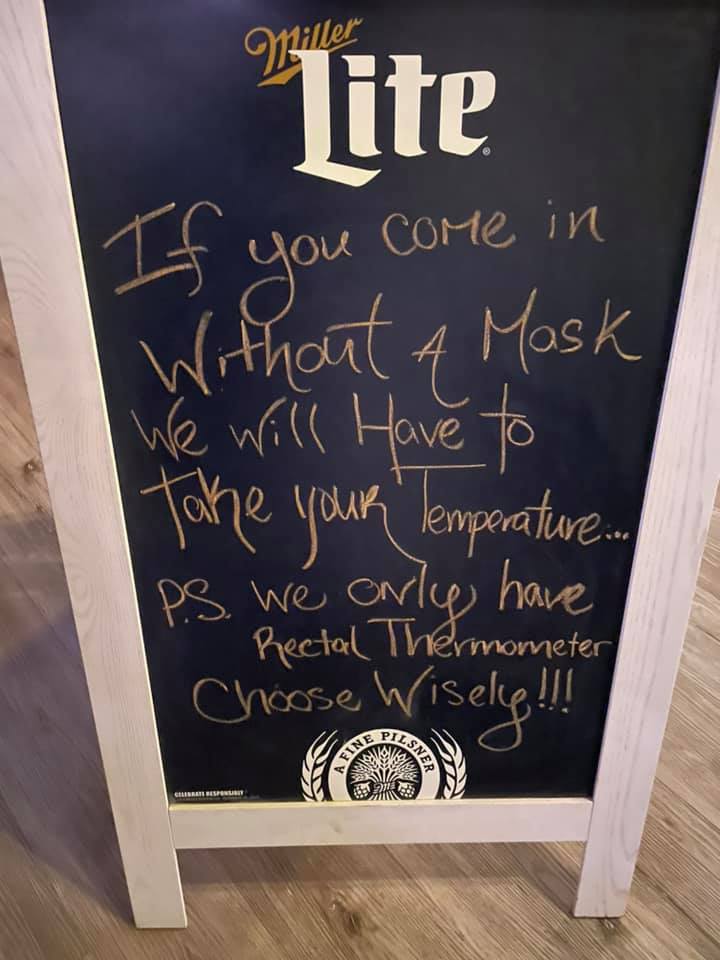 Miller
Lite
If you come in
Without A Mask
We will Have to
Take your Temperature...
P.S. we only have
Rectal Thermometer
Choose Wisely!!!
A FINE PILSNER
CELEBRATE RESPONSIBLY